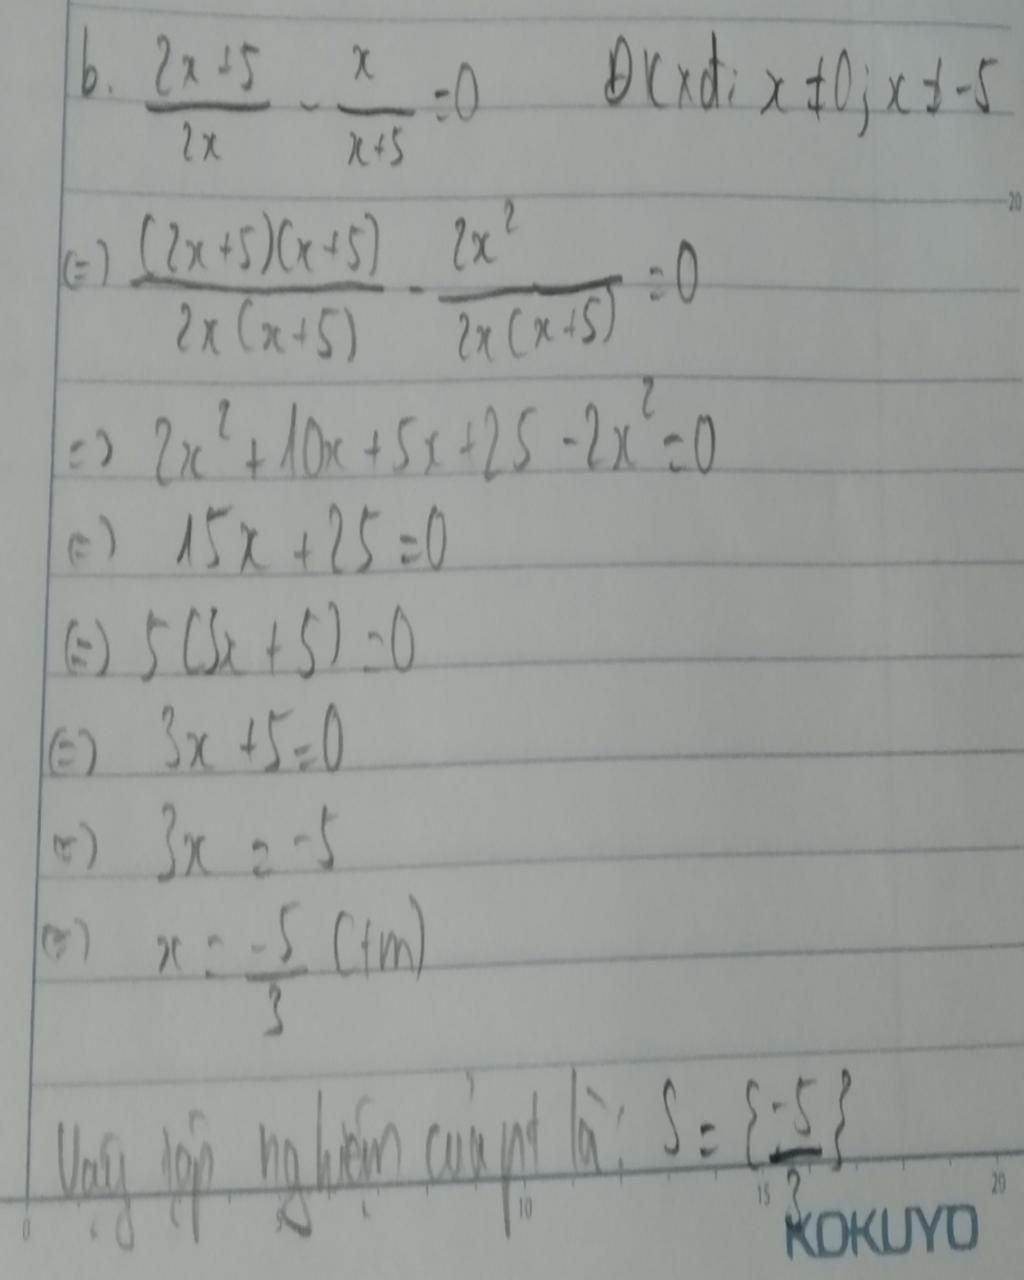 b. \frac{2x+5}{2x} - \frac{x}{x+5} = 0 ĐKxđ: x ≠ 0; x ≠ -5
20
(=) \frac{(2x+5)(x+5)}{2x(x+5)} - \frac{2x^2}{2x(x+5)} = 0
=) 2x^2 + 10x + 5x + 25 - 2x^2 = 0
(=) 15x + 25 = 0
(=) 5(3x + 5) = 0
(=) 3x + 5 = 0
(=) 3x = -5
(=) x = \frac{-5}{3} (tm)
Vậy tập nghiệm của pt là: S = {\frac{-5}{3}}
0 10 15 20
KOKUYO